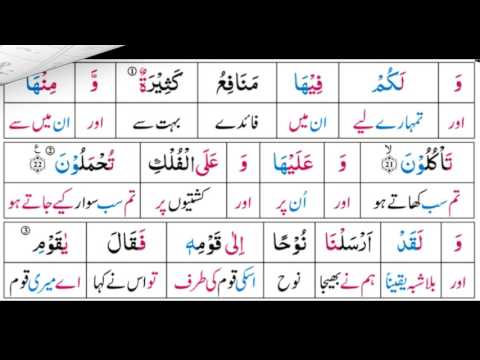 وَ لَكُمْ فِيْهَا مَنَافِعُ كَثِيْرَةٌ ① وَّ مِنْهَا
اور تمہارے لیے ان میں فائدے بہت سے اور ان میں سے
تَاْكُلُوْنَ ۙ 21 وَ عَلَيْهَا وَ عَلَى الْفُلْكِ تُحْمَلُوْنَ ② ۧ 22
تم سب کھاتے ہو اور اُن پر اور کشتیوں پر تم سب سوار کیے جاتے ہو
وَ لَقَدْ اَرْسَلْنَا نُوْحًا اِلٰى قَوْمِهٖ فَقَالَ يٰقَوْمِ ③
اور بلاشبہ یقیناً ہم نے بھیجا نوح اسکی قوم کی طرف تو اس نے کہا اے میری قوم